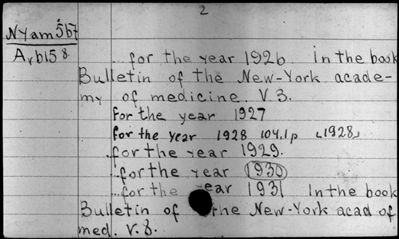 2
NYam567
A,b158
..for the year 1926 in the book
Bulletin of the New-York acade-
my of medicine. V. 3.
For the year 1927
for the year 1928 104.1p [1928]
..for the year 1929.
..for the year 1930
..for the year 1931 In the book
Bulletin of the New-York acad of
med. V. 8.